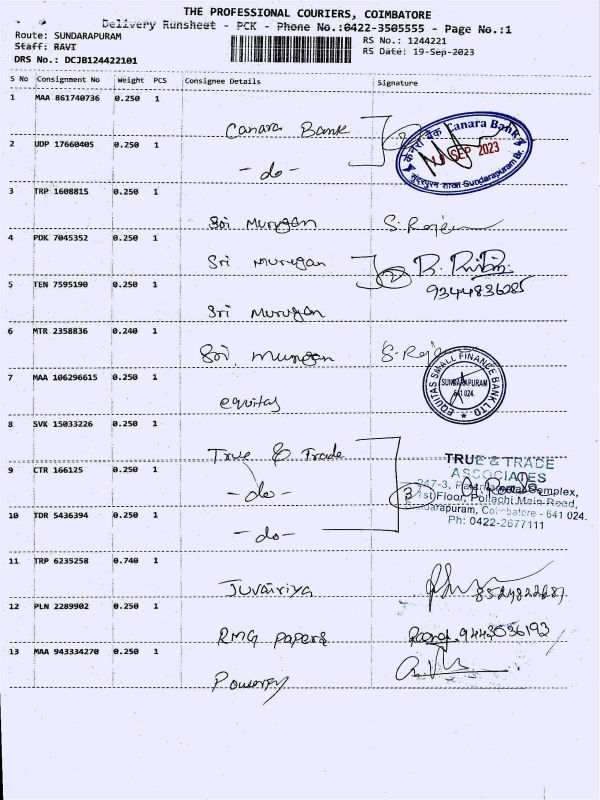 THE PROFESSIONAL COURIERS, COIMBATORE
Delivery Runsheet - PCK - Phone No.:0422-3505555 - Page No.:1
Route: SUNDARAPURAM
RS No.: 1244221
Staff: RAVI
RS Date: 19-Sep-2023
DRS No.: DCJB124422101
S No Consignment No Weight PCS Consignee Details Signature
1 MAA 861740736 0.250 1
Canara Bank
केनरा बैंक Canara Bank
SEP 2023
सुंदरपुरम शाखा Sundarapuram Br.
2 UDP 17660405 0.250 1
- do -
3 TRP 1608815 0.250 1
Sri Murugan
4 PDK 7045352 0.250 1
Sri Murugan 2
9344836285
5 TEN 7595190 0.250 1
Sri Murugan
6 MTR 2358836 0.240 1
Sri. Murugan
7 MAA 106296615 0.250 1
equitas
EQUITAS SMALL FINANCE BANK LTD.
SUNDARAPURAM
641 024.
8 SVK 15033226 0.250 1
True & Trade
9 CTR 166125 0.250 1
- do - 3
TRUE & TRADE
ASSOCIATES
247-3, Complex,
1st Floor, Pollachi Main Road,
Sundarapuram, Coimbatore - 641 024.
Ph: 0422-2677111
10 TDR 5436394 0.250 1
- do -
11 TRP 6235258 0.740 1
Juvairiya
12 PLN 2289902 0.250 1
RMG Papers
9443036193
13 MAA 943334270 0.250 1